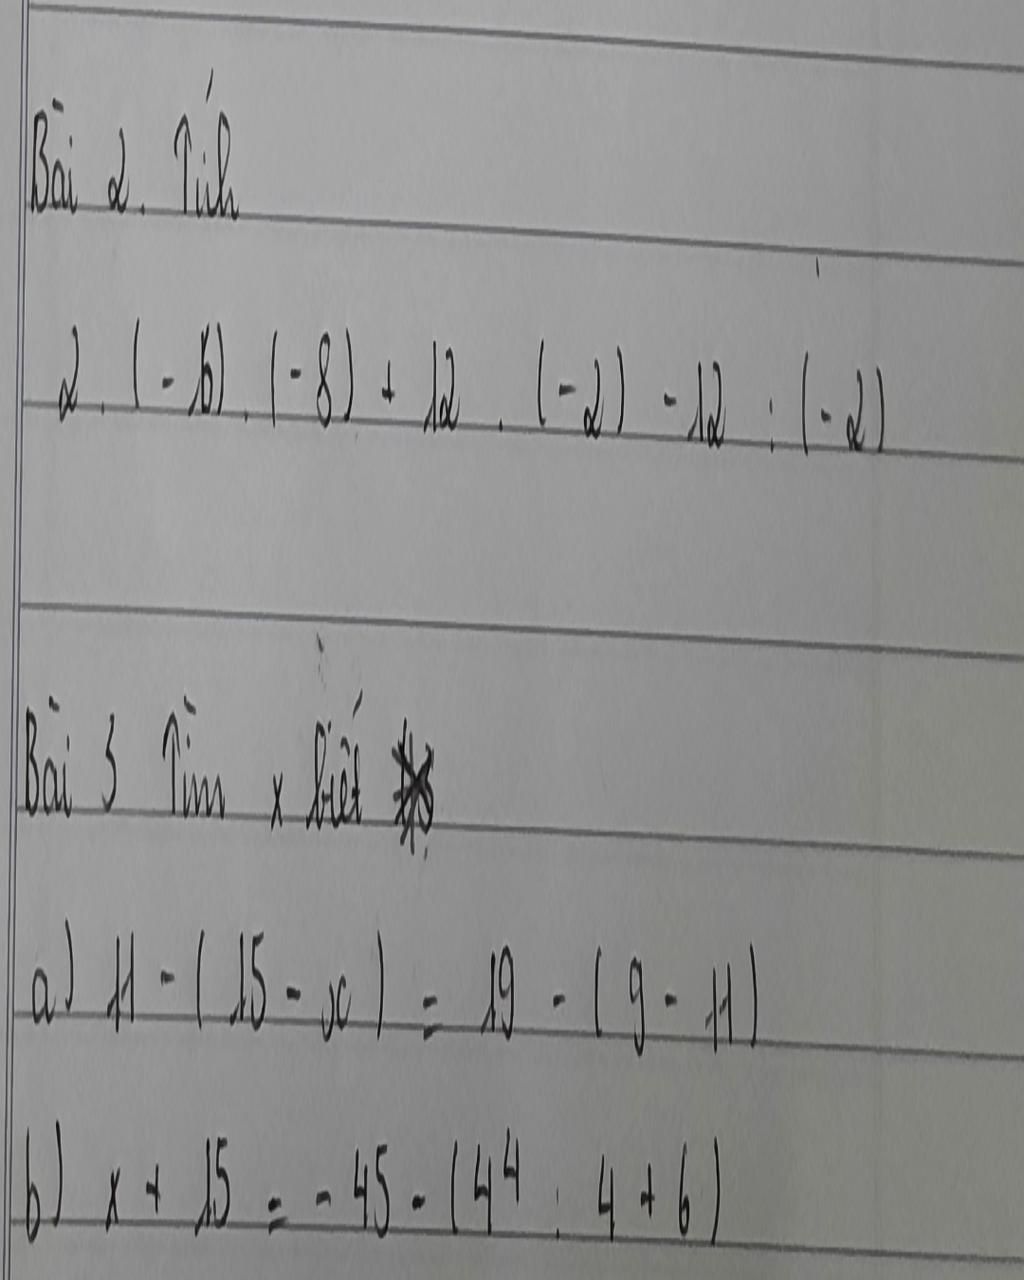 Bài 2. Tính
2 . (-6) . (-8) + 12 . (-2) - 12 : (-2)
Bài 3 Tìm x biết
a) 11 - (15 - x) = 19 - (9 - 11)
b) x + 15 = -45 - (4⁴ : 4 + 6)